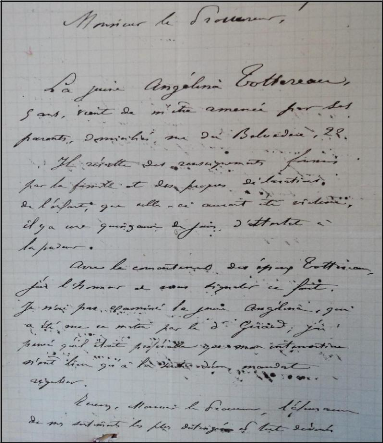 Monsieur le Procureur,
La jeune Angélina Tottereau,
5 ans, vient de m'être amenée par ses
parents, domiciliés rue du Belvédère, 22.
Il résulte des renseignements fournis
par la famille et des propres déclarations
de l'enfant, que celle-ci aurait été victime,
il y a une quinzaine de jours, d'attentat à
la pudeur.
Avec le consentement des époux Tottereau,
j'ai l'honneur de vous signaler ce fait.
Je n'ai pas examiné la jeune Angélina, qui
a été vue ce matin par le Dr ; j'ai
pensé qu'il était préférable que mon intervention
n'eût lieu qu'à la suite d'un mandat
régulier.
Veuillez, Monsieur le Procureur, l'assurance
de mes sentiments les plus distingués et tout dévoués